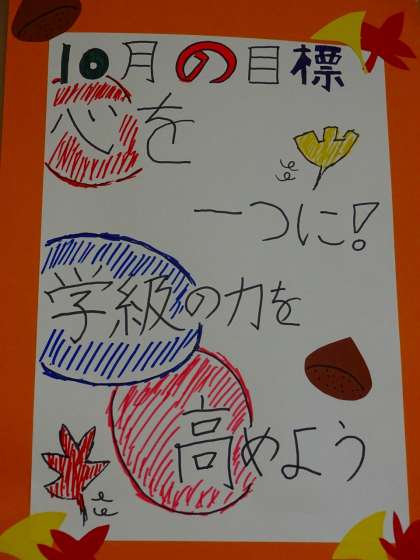 10月の目標
心を
一つに!
学級の力を
高めよう